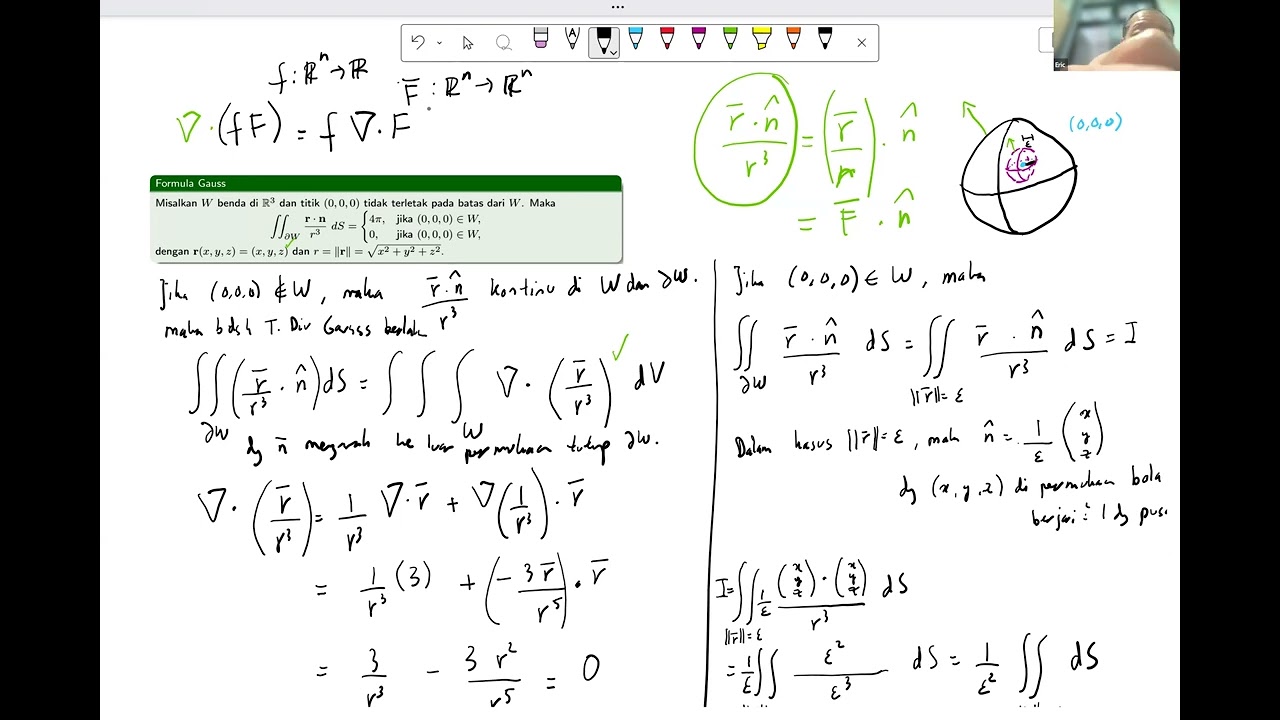 f : ℝⁿ → ℝ
F̅ : ℝⁿ → ℝⁿ
∇·(fF) = f ∇·F
Formula Gauss
Misalkan W benda di ℝ³ dan titik (0,0,0) tidak terletak pada batas dari W. Maka
∬_∂W (r·n)/r³ dS = { 4π, jika (0,0,0) ∈ W,
0, jika (0,0,0) ∈ W,
dengan r(x,y,z) = (x,y,z) dan r = ‖r‖ = √(x² + y² + z²).
Jika (0,0,0) ∉ W, maka (r̅·n̂)/r³ kontinu di W dan ∂W.
maka bdsk T. Div Gauss berlaku
∬_∂W (r̅/r³ · n̂) dS = ∫∫∫_W ∇·(r̅/r³) dV
dg n̅ mengarah ke luar permukaan tutup ∂W.
∇·(r̅/r³) = 1/r³ ∇·r̅ + ∇(1/r³)·r̅
= 1/r³ (3) + (-3r̅/r⁵)·r̅
= 3/r³ - 3r²/r⁵ = 0
(r̅·n̂)/r³ = (r̅/r)·n̂
= F̅·n̂
(0,0,0)
Jika (0,0,0) ∈ W, maka
∬_∂W (r̅·n̂)/r³ dS = ∬_‖r̅‖=ε (r̅·n̂)/r³ dS = I
Dalam kasus ‖r̅‖ = ε, maka n̂ = 1/ε (x y z)
dg (x,y,z) di permukaan bola
berjari² 1 dg pus
I = ∬_‖r̅‖=ε 1/ε ((x y z)·(x y z))/r³ dS
= 1/ε ∬ ε²/ε³ dS = 1/ε² ∬ dS
Eric